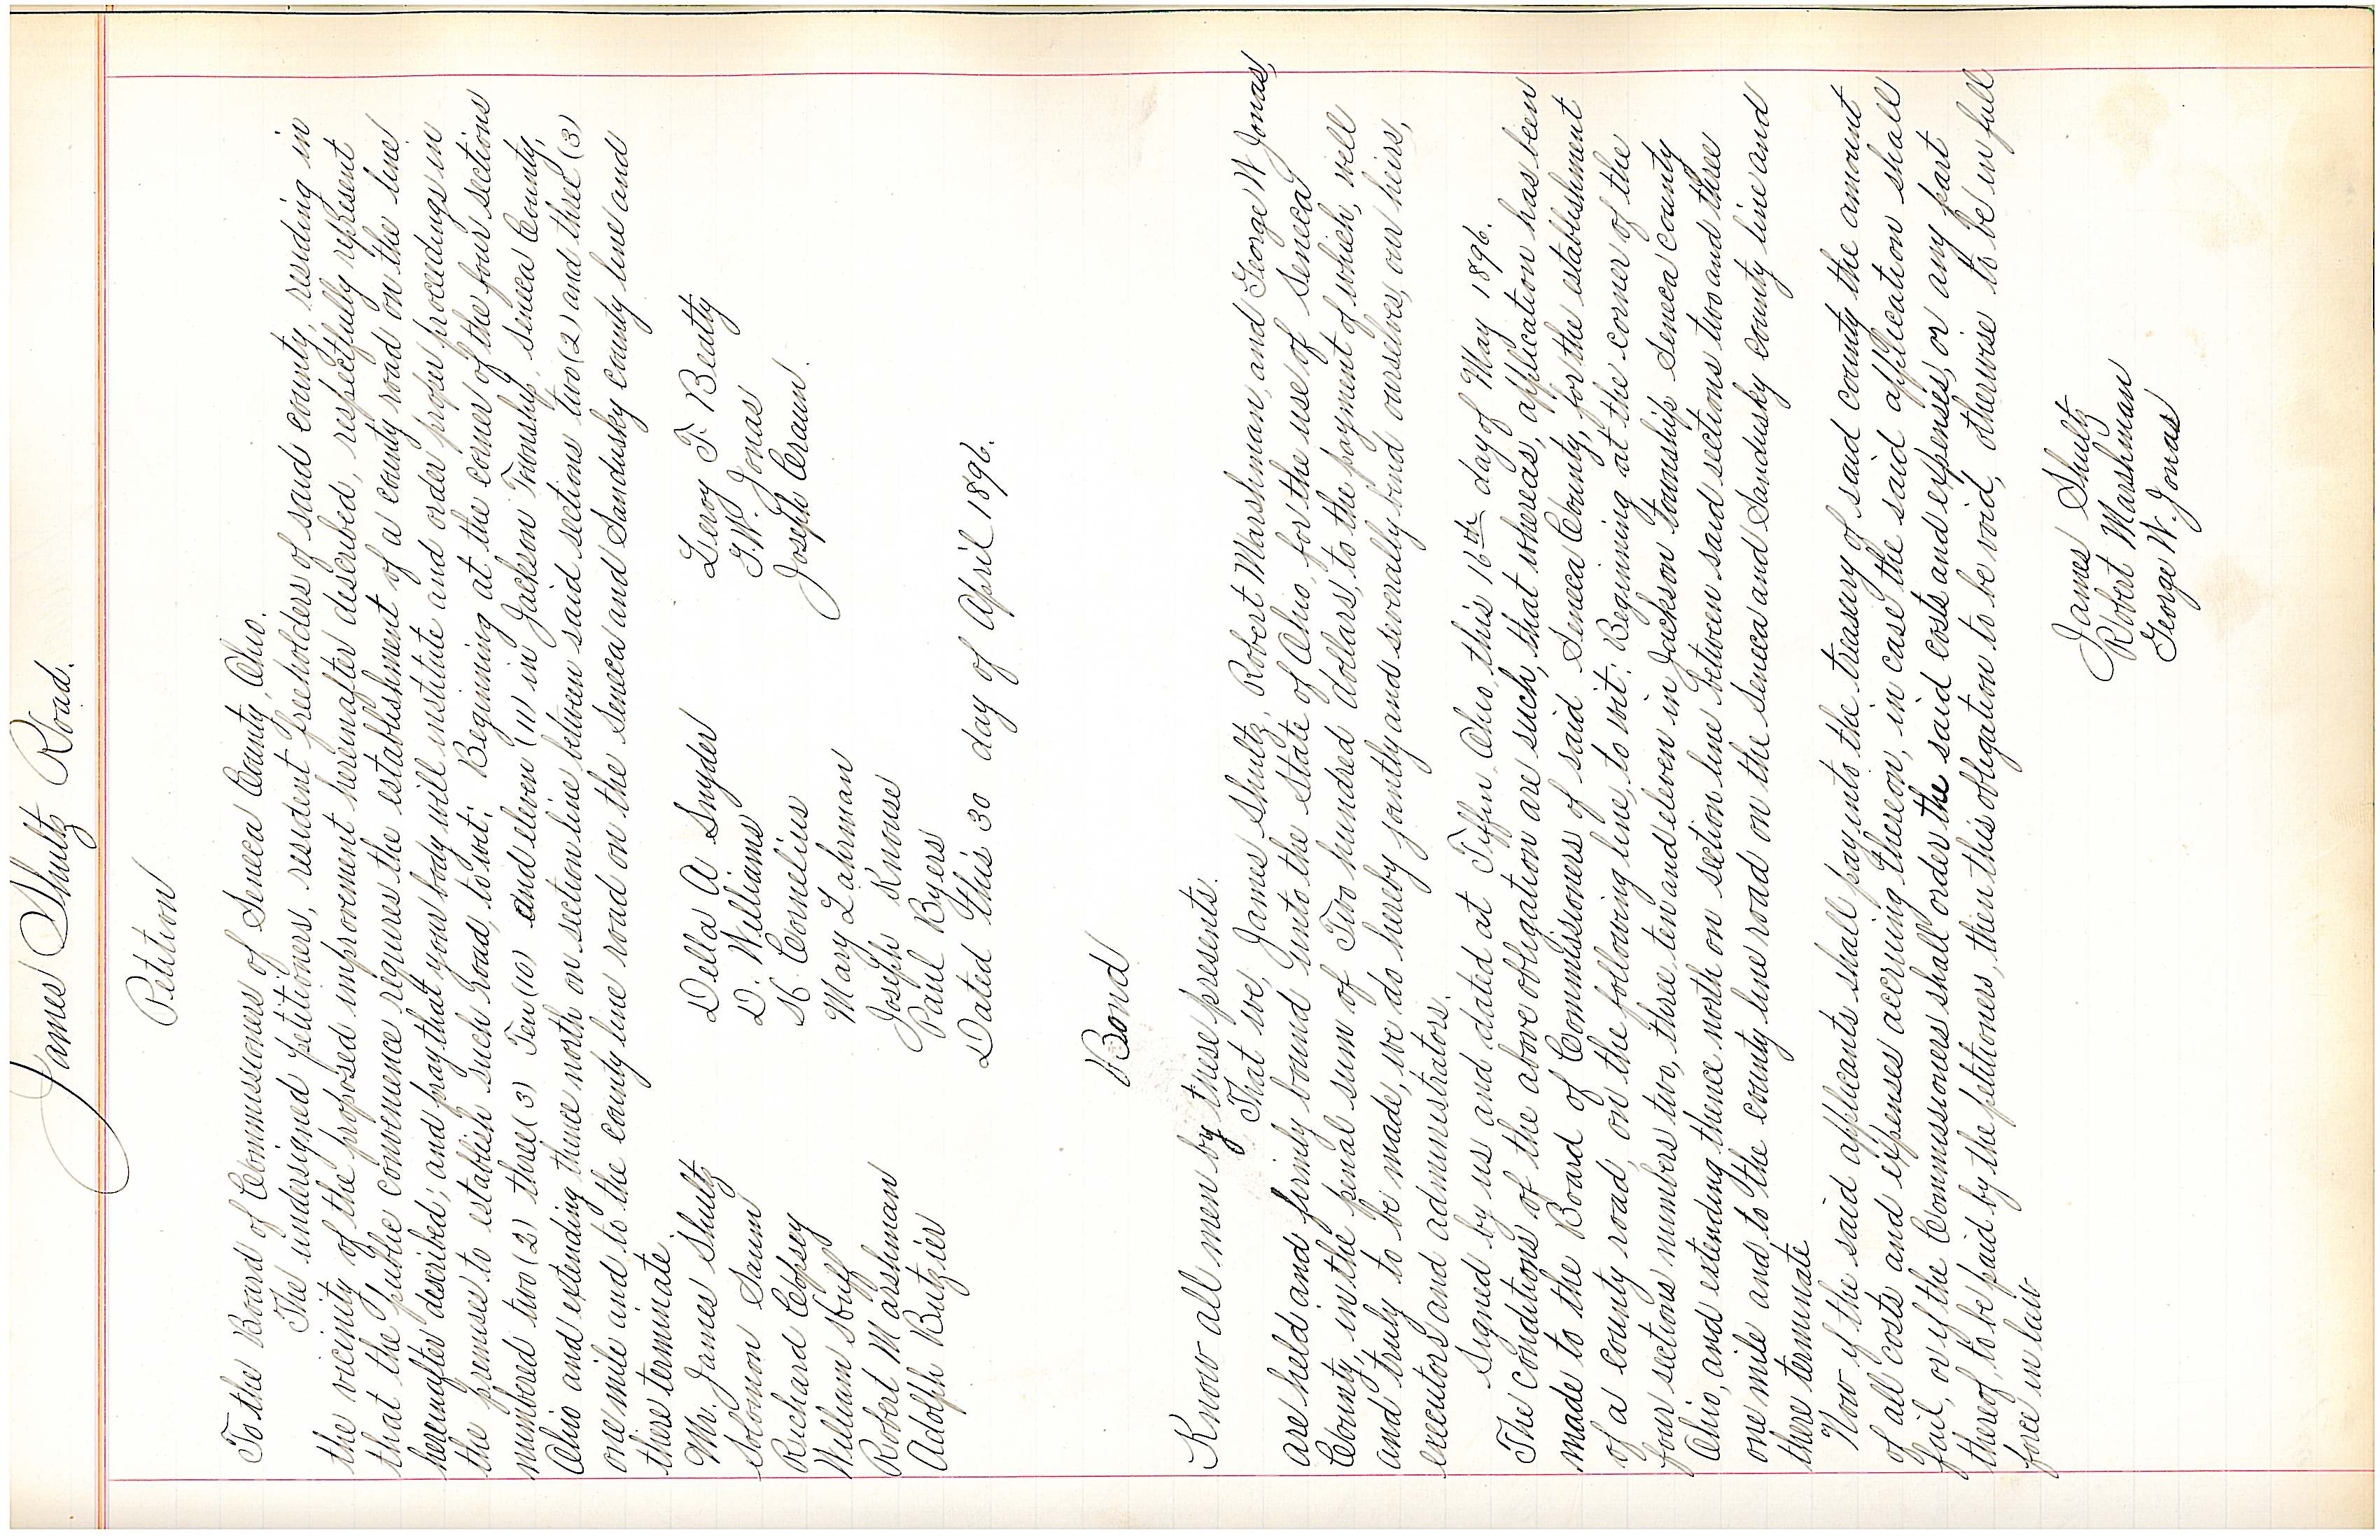 James Shultz Road.
Petition
To the Board of Commissioners of Seneca County, Ohio.
The undersigned petitioners, resident freeholders of said county, residing in
the vicinity of the proposed improvement hereinafter described, respectfully represent
that the public convenience requires the establishment of a county road on the line
hereinafter described; and pray that your body will institute and order proper proceedings in
the premises to establish such road, to wit; Beginning at the corner of the four sections
numbered two (2) three (3) Ten (10) and eleven (11) in Jackson Township, Seneca County,
Ohio and extending thence north on section line between said sections two (2) and three (3)
one mile and to the county line road on the Seneca and Sandusky county line and
there terminate.
Mr. James Shultz Della A Snyder Leroy F. Beatty
Solomon Saum D. Williams G.W. Jonas
Richard Copsey H. Cornelius Joseph Craun.
William Huff Mary Lahrman
Robert Marshman Joseph Knouse
Adolph Butzier Paul Byers
Dated this 30 day of April 1896.
Bond
Know all men by these presents.
That we, James Shultz, Robert Marshman, and George W Jonas,
are held and firmly bound unto the State of Ohio, for the use of Seneca
County, in the penal sum of Two hundred dollars, to the payment of which, well
and truly to be made, we do hereby jointly and severally bind ourselves, our heirs,
executors and administrators.
Signed by us and dated at Tiffin, Ohio, this 16th day of May 1896.
The conditions of the above obligation are such, that whereas, application has been
made to the Board of Commissioners of said Seneca County, for the establishment
of a county road, on the following line, to wit: Beginning at the corner of the
four sections numbers two, three, ten and eleven in Jackson township Seneca county
Ohio, and extending thence north on section line between said sections two and three
one mile and to the county line road on the Seneca and Sandusky county line and
there terminate
Now if the said applicants shall pay into the treasury of said county the amount
of all costs and expenses accruing thereon, in case the said application shall
fail, or if the Commissioners shall order the said costs and expenses, or any part
thereof, to be paid by the petitioners, then this obligation to be void, otherwise to be in full
force in law
James Shultz
Robert Marshman
George W. Jonas